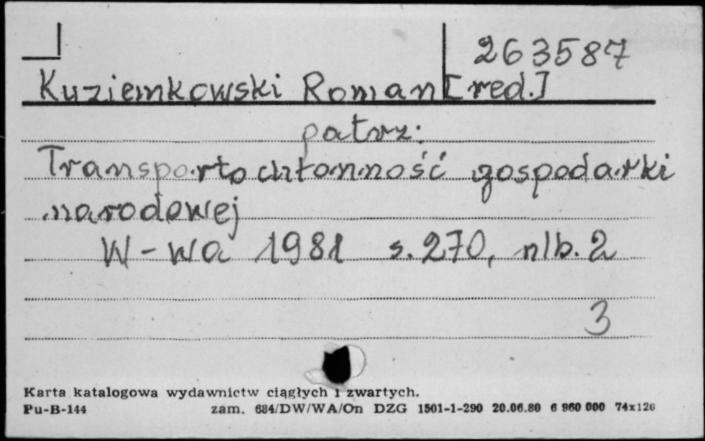 263587
Kuziemkowski Roman [red.]
patrz:
Transportochłonność gospodarki
narodowej
W-wa 1981 s. 270, nlb. 2
3
Karta katalogowa wydawnictw ciągłych i zwartych.
Pu-B-144 zam. 684/DW/WA/On DZG 1501-1-290 20.06.80 6 960 000 74x126